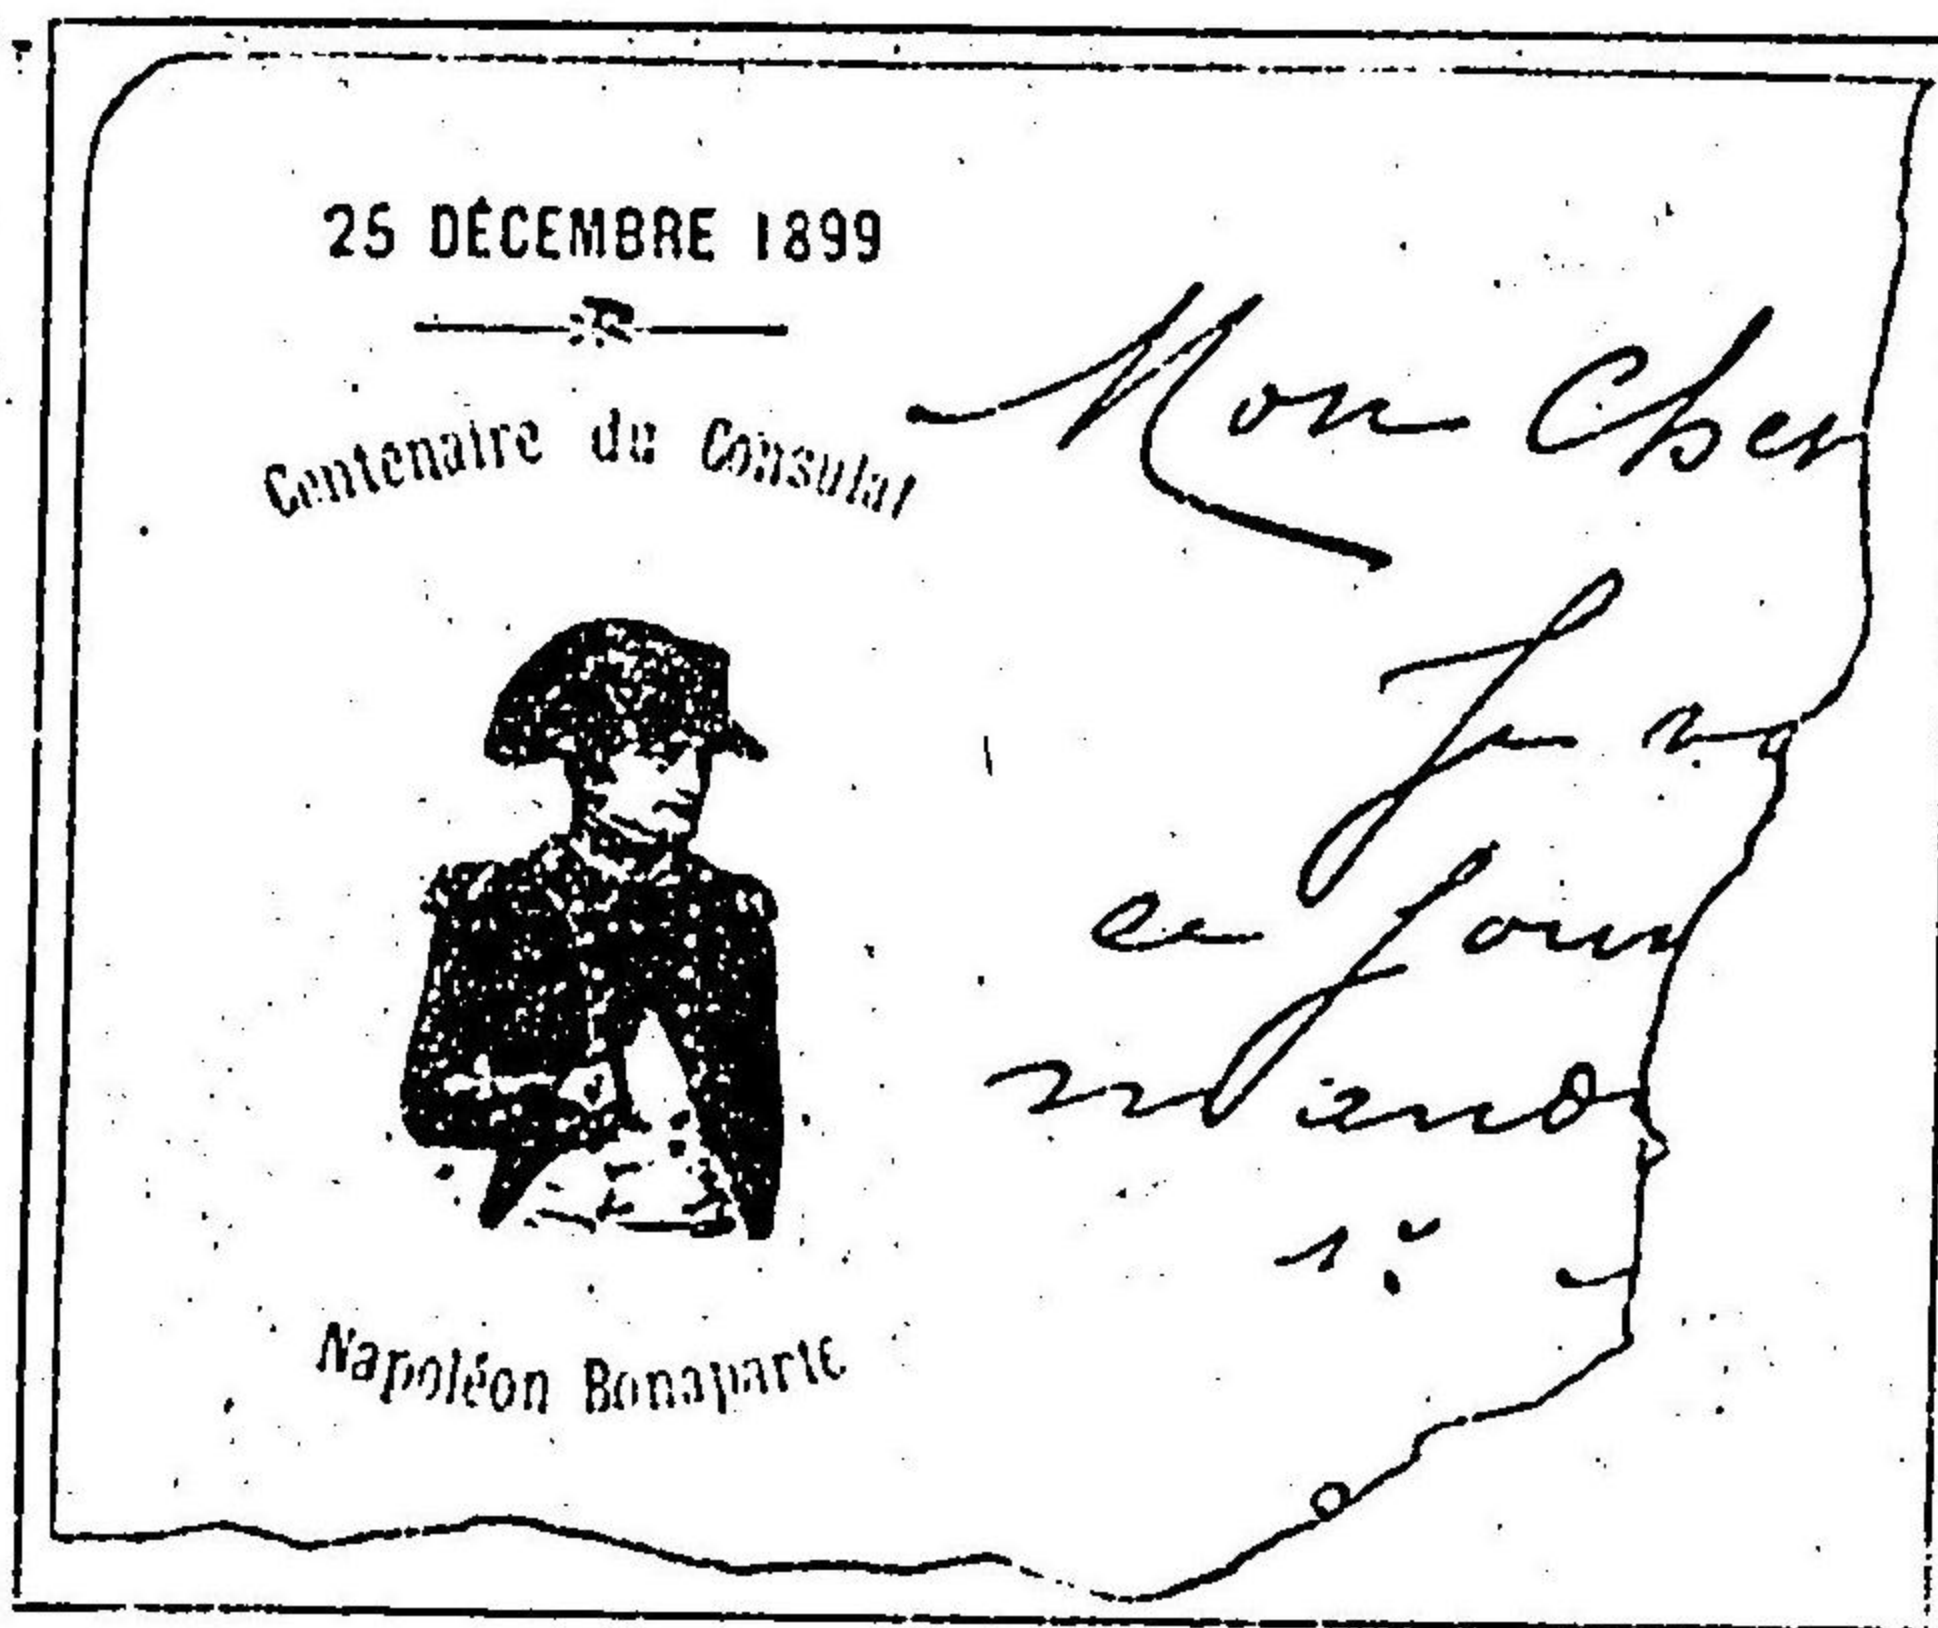 25 DÉCEMBRE 1899
Centenaire du Consulat
Napoléon Bonaparte
Mon Cher
Je
ce jour